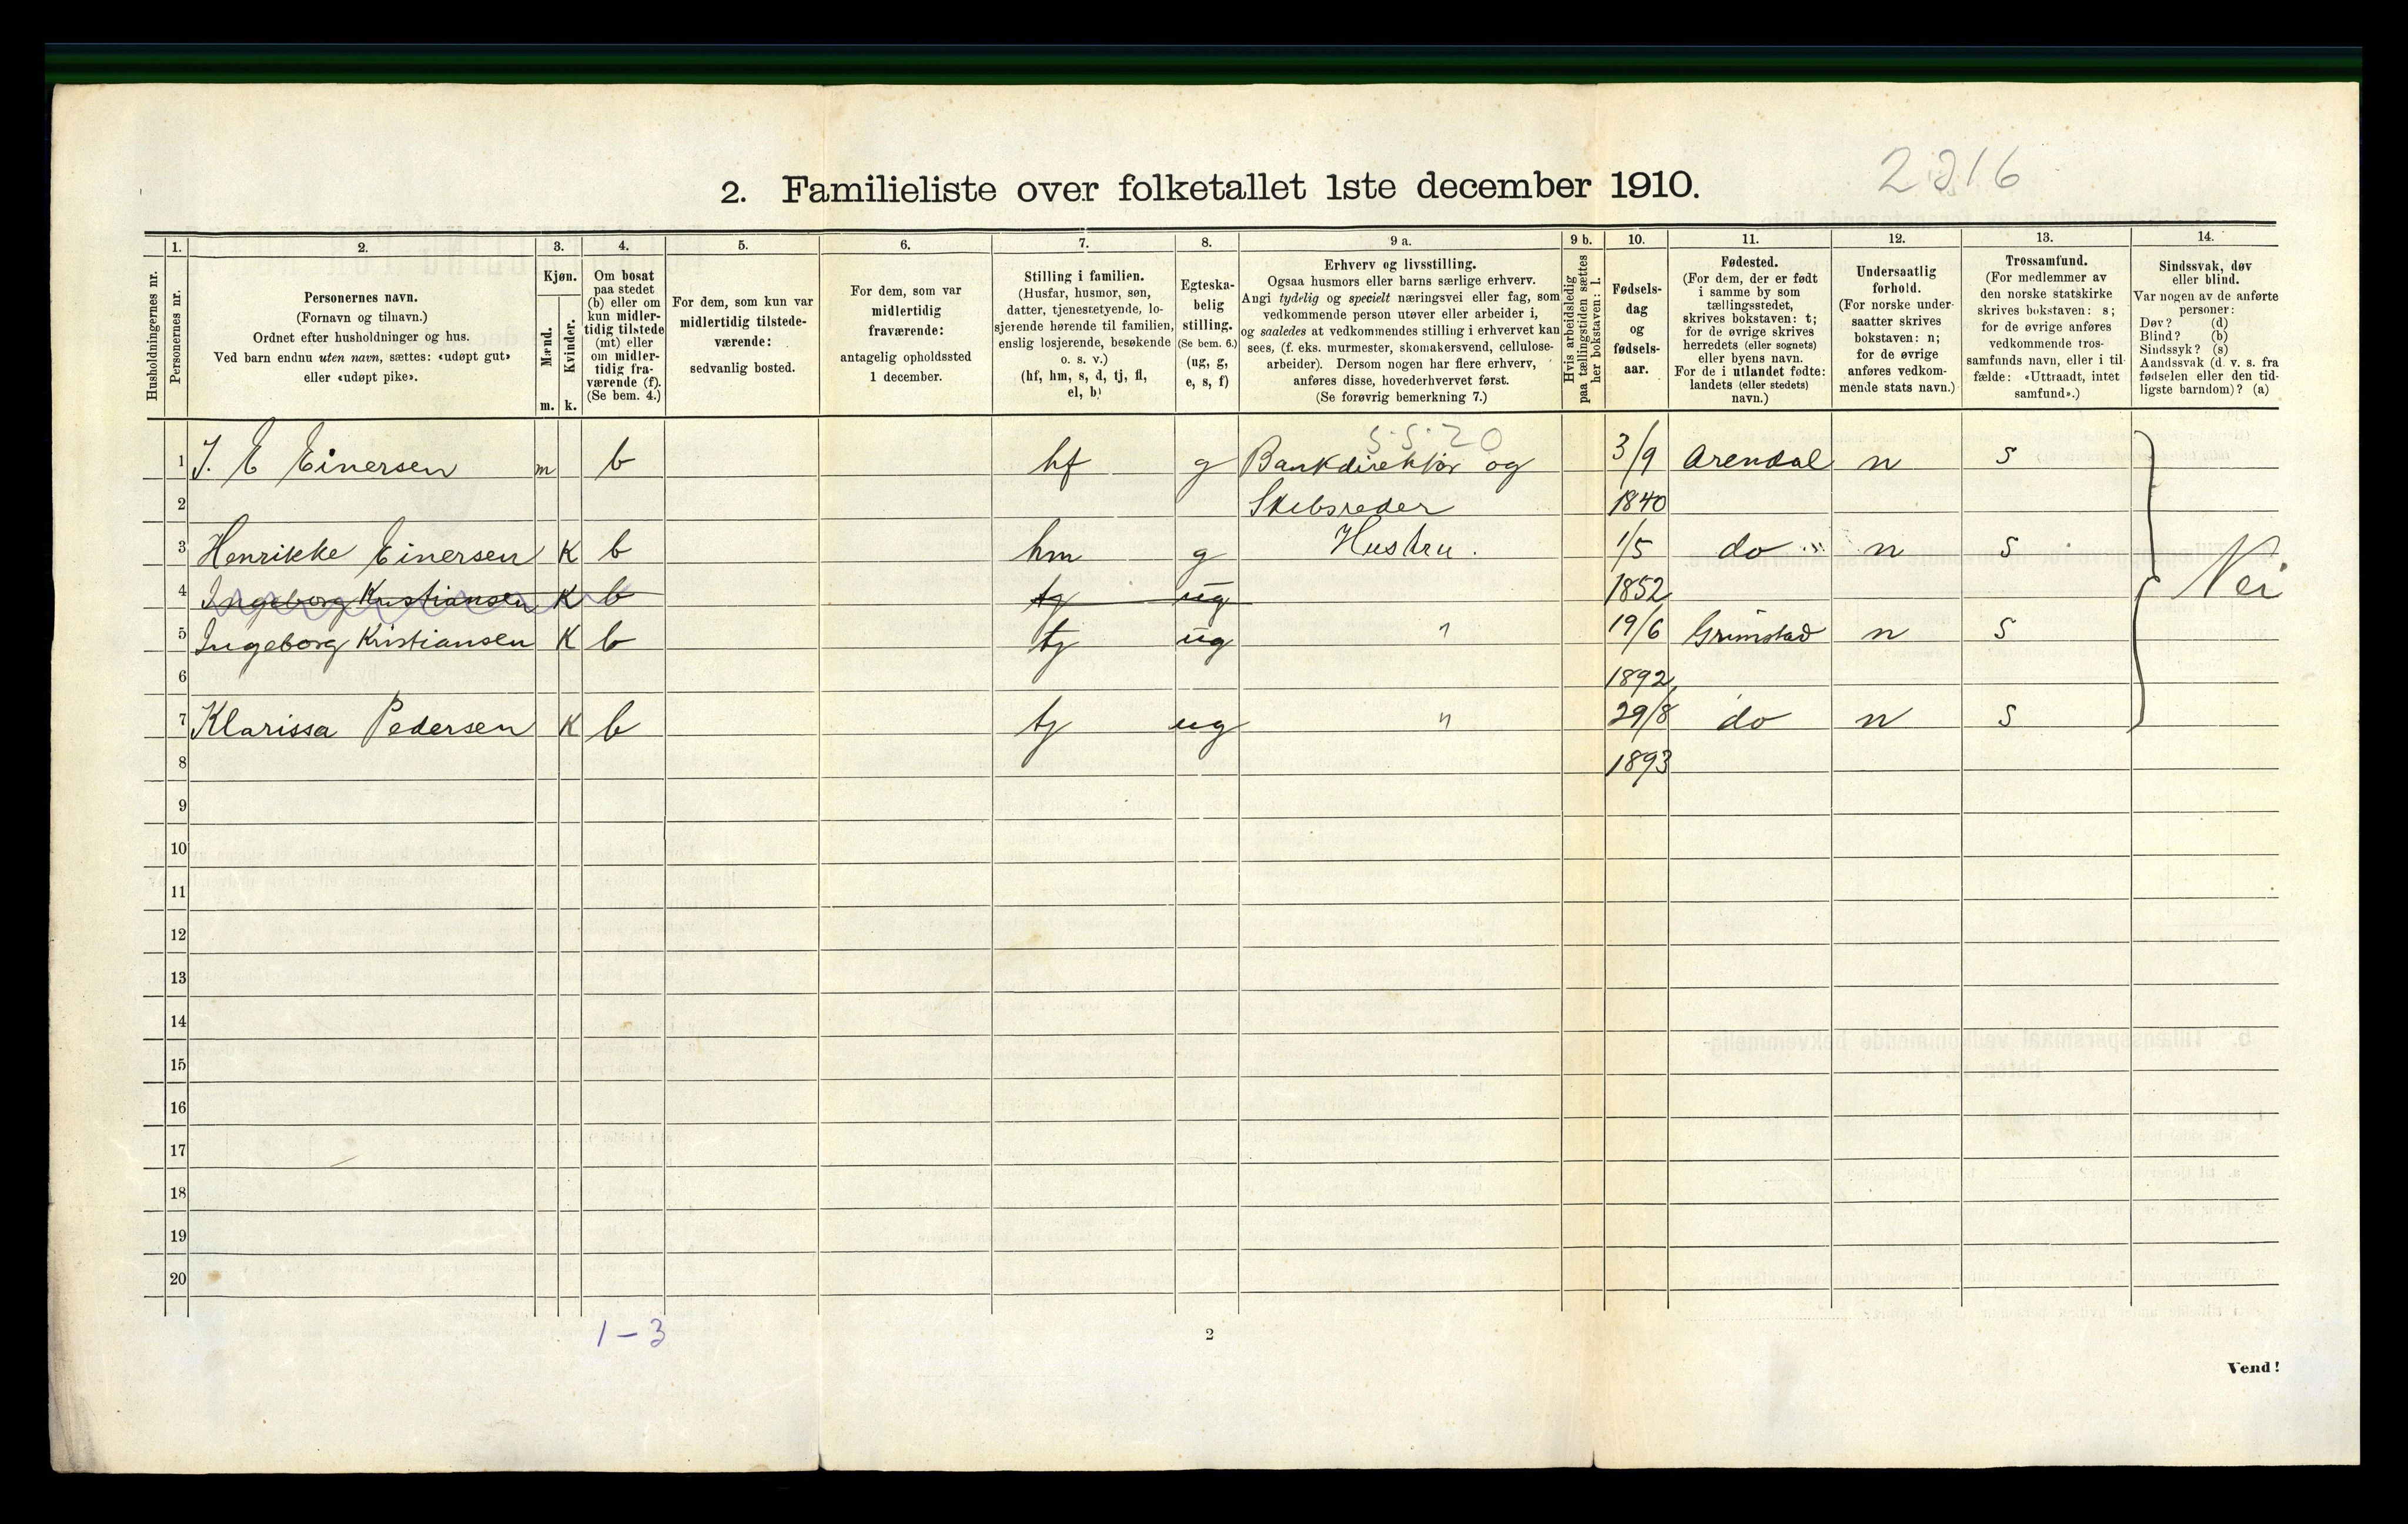 2216
2. Familieliste over folketallet 1ste december 1910.
Husholdningernes nr.
1.
Personernes nr.
2.
Personernes navn.
(Fornavn og tilnavn.)
Ordnet efter husholdninger og hus.
Ved barn endnu uten navn, sættes: «udøpt gut»
eller «udøpt pike».
3.
Kjøn.
Mænd.
Kvinder.
m. k.
4.
Om bosat
paa stedet
(b) eller om
kun midler-
tidig tilstede
(mt) eller
om midler-
tidig fra-
værende (f).
(Se bem. 4.)
5.
For dem, som kun var
midlertidig tilstede-
værende:
sedvanlig bosted.
6.
For dem, som var
midlertidig
fraværende:
antagelig opholdssted
1 december.
7.
Stilling i familien.
(Husfar, husmor, søn,
datter, tjenestetyende, lo-
sjerende hørende til familien,
enslig losjerende, besøkende
o. s. v.)
(hf, hm, s, d, tj, fl,
el, b)
8.
Egteska-
belig
stilling.
(Se bem. 6.)
(ug, g,
e, s, f)
9 a.
Erhverv og livsstilling.
Ogsaa husmors eller barns særlige erhverv.
Angi tydelig og specielt næringsvei eller fag, som
vedkommende person utøver eller arbeider i,
og saaledes at vedkommendes stilling i erhvervet kan
sees, (f. eks. murmester, skomakersvend, cellulose-
arbeider). Dersom nogen har flere erhverv,
anføres disse, hovederhvervet først.
(Se forøvrig bemerkning 7.)
9 b.
Hvis arbeidsledig
paa tællingstiden sættes
her bokstaven: l.
10.
Fødsels-
dag
og
fødsels-
aar.
11.
Fødested.
(For dem, der er født
i samme by som
tællingsstedet,
skrives bokstaven: t;
for de øvrige skrives
herredets (eller sognets)
eller byens navn.
For de i utlandet fødte:
landets (eller stedets)
navn.)
12.
Undersaatlig
forhold.
(For norske under-
saatter skrives
bokstaven: n;
for de øvrige
anføres vedkom-
mende stats navn.)
13.
Trossamfund.
(For medlemmer av
den norske statskirke
skrives bokstaven: s;
for de øvrige anføres
vedkommende tros-
samfunds navn, eller i til-
fælde: «Uttraadt, intet
samfund».)
14.
Sindssvak, døv
eller blind.
Var nogen av de anførte
personer:
Døv? (d)
Blind? (b)
Sindssyk? (s)
Aandssvak (d. v. s. fra
fødselen eller den tid-
ligste barndom)? (a)
5.5.20
1 J. E Einersen m b hf g Bankdirektør og 3/9 Arendal n s
2 Skibsreder 1840
3 Henrikke Einersen K b hm g Hustru. 1/5 do n s
4 Ingeborg Kristiansen K b tj ug 1852 Nei
5 Ingeborg Kristiansen K b tj ug " 19/6 Grimstad n s
6 1892
7 Klarissa Pedersen K b tj ug " 29/8 do n s
8 1893
9
10
11
12
13
14
15
16
17
18
19
20
1 – 3
2
Vend!